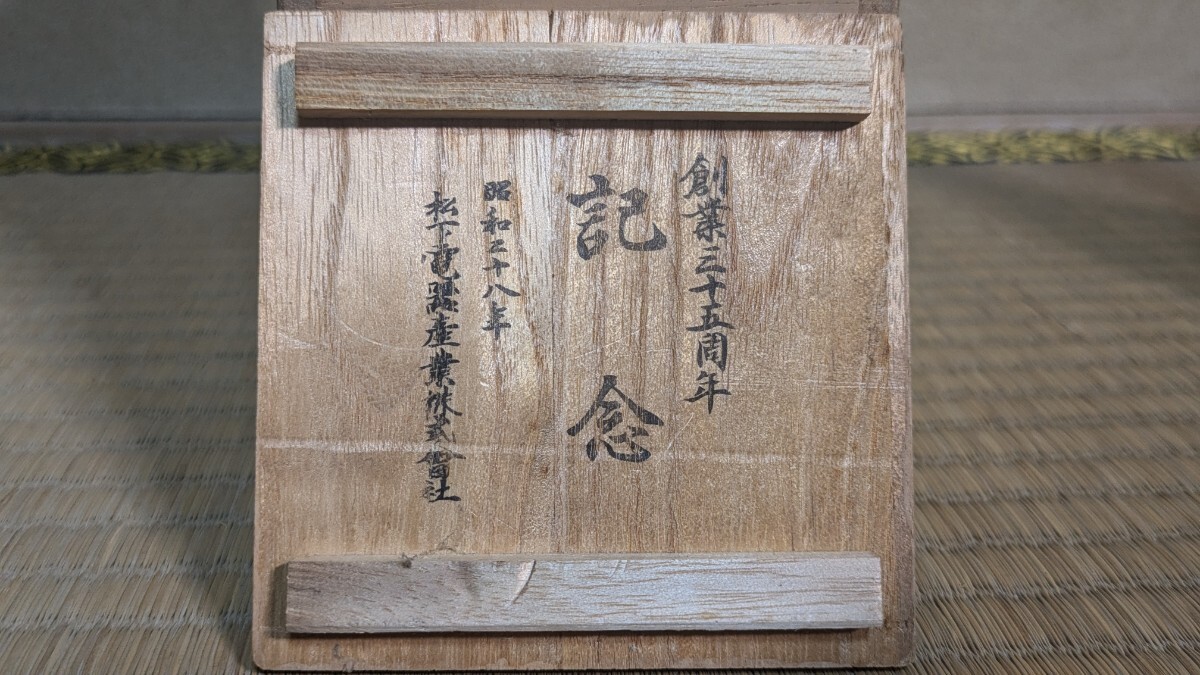 創業三十五周年
記念
昭和二十八年
松下電器産業株式會社